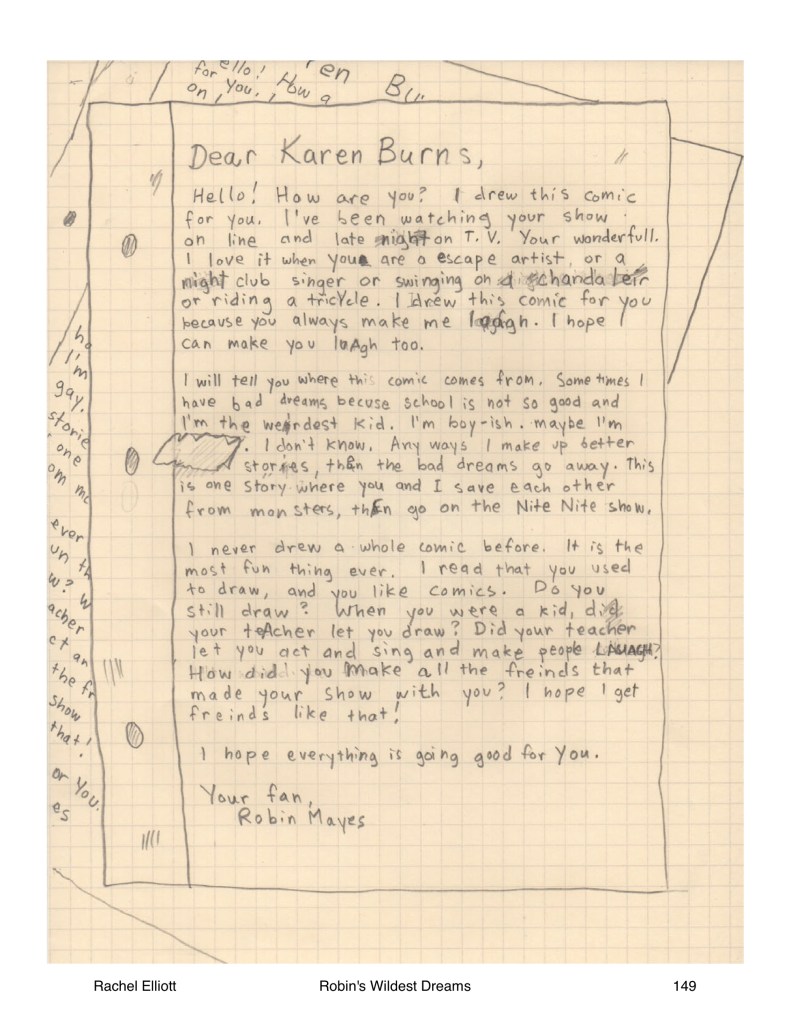 ello!
for
on you.
How a
en
Bu
Dear Karen Burns,
Hello! How are you? I drew this comic
for you. I've been watching your show
on line and late night on T.V. Your wonderfull.
I love it when you are a escape artist, or a
night club singer or swinging on a chandaleir
or riding a tricycle. I drew this comic for you
because you always make me laugh. I hope I
can make you luAgh too.
I will tell you where this comic comes from. Some times I
have bad dreams becuse school is not so good and
I'm the weirdest kid. I'm boy-ish. maybe I'm
. I don't know. Any ways I make up better
stories, then the bad dreams go away. This
is one story where you and I save each other
from monsters, thEn go on the Nite Nite show.
I never drew a whole comic before. It is the
most fun thing ever. I read that you used
to draw, and you like comics. Do you
still draw? When you were a kid, did
your teAcher let you draw? Did your teacher
let you act and sing and make people LAUAGH?
How did you make all the freinds that
made your show with you? I hope I get
freinds like that!
I hope everything is going good for You.
Your fan,
Robin Mayes
ha
I'm
gay.
storie
one
om mo
ever
un th
w? W
acher
ct an
the fr
show
that!
or You.
es
Rachel Elliott Robin's Wildest Dreams 149